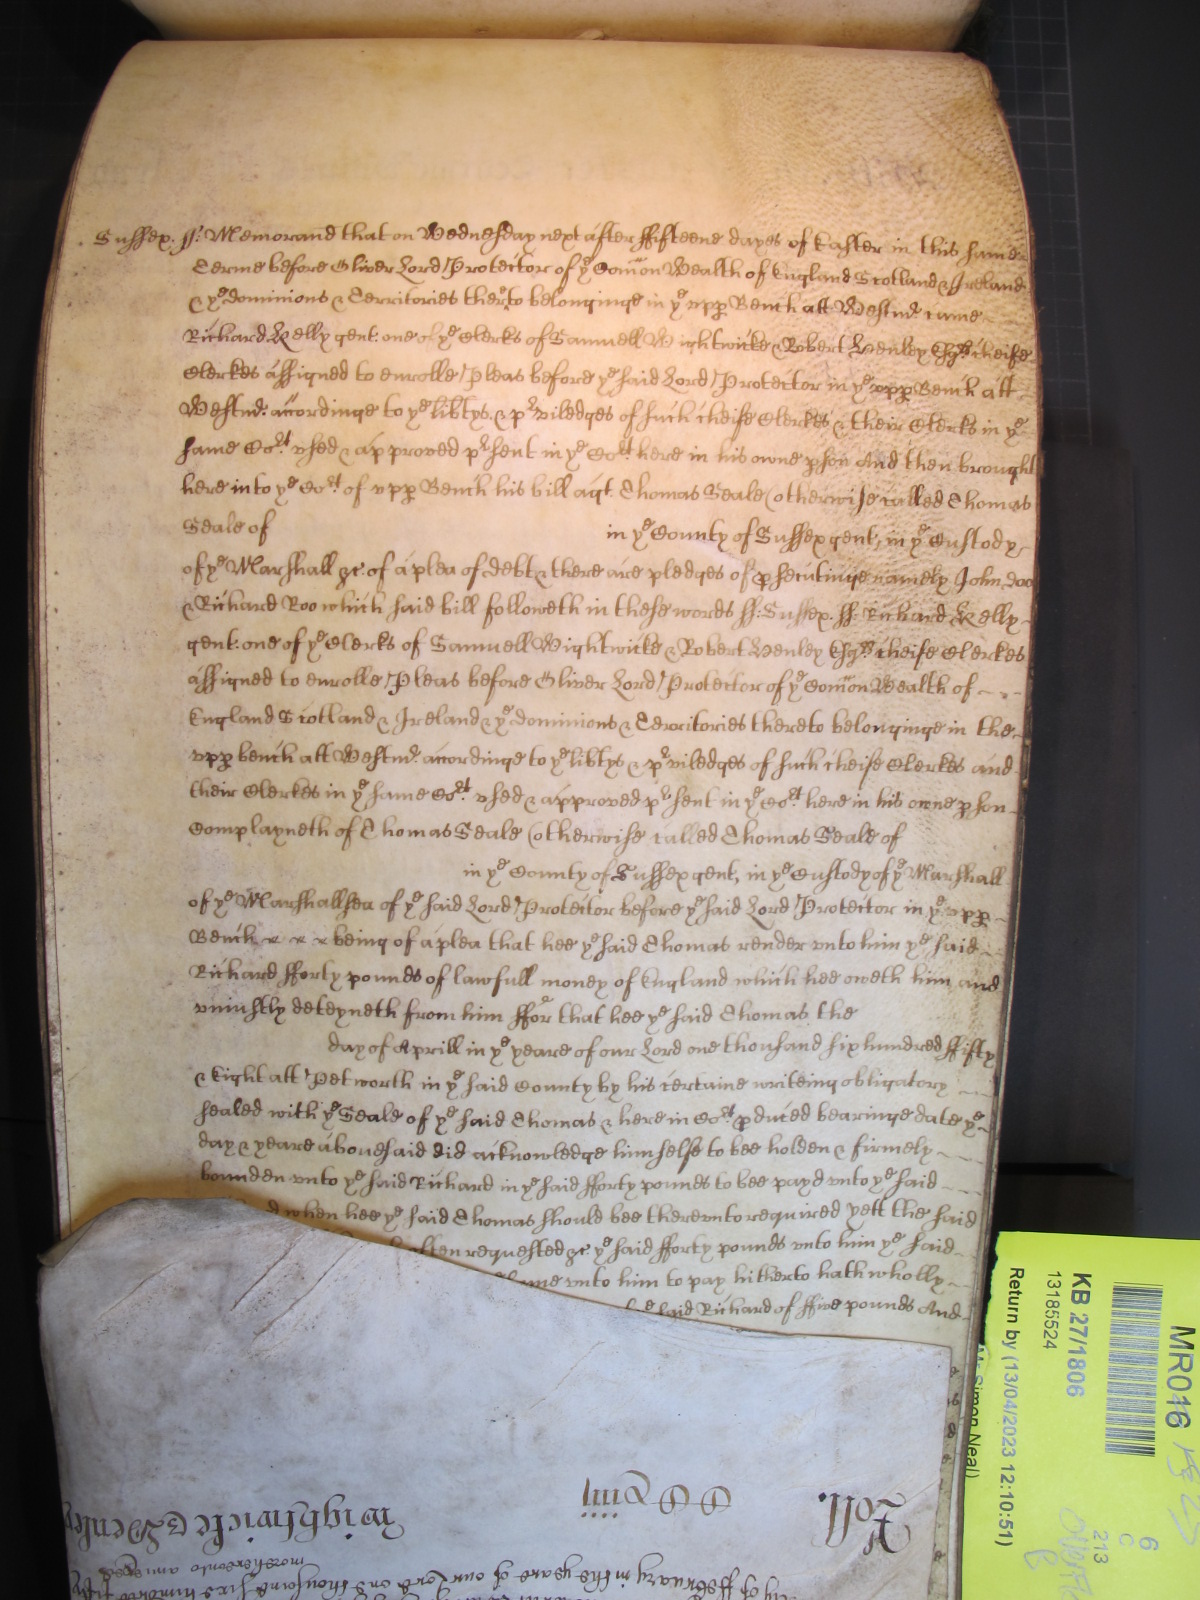 Sussex. ss: Memorand that on Wednesday next after ffifteene dayes of Easter in this same
Terme before Oliver Lord Protector of ye Comon Wealth of England Scotland & Ireland
& ye dominions & Territories therto belonginge in ye vpp Bench att Westmr came
Richard Kelly gent: one of ye Clerks of Samuell Wightwicke & Robert Henley Esqrs cheife
Clerkes assigned to enrolle Pleas before ye said Lord Protector in ye vpp Bench att
Westmr. accordinge to ye libtys. & prviledges of such cheife Clerkes & their Clerks in ye
same Cort vsed & approved prsent in ye Cort here in his owne pson And then brought
here into ye Cort of vpp Bench his bill agt. Thomas Seale (otherwise called Thomas
Seale of in ye County of Sussex gent, in ye Custody
of ye Marshall &c of a plea of debt & there are pledges of psecutinge namely John doo
& Richard Roo which said bill followeth in these words ss: Sussex. ss: Richard Kelly
gent: one of ye Clerks of Samuell Wightwicke & Robert Henley Esqrs cheife Clerkes
assigned to enrolle Pleas before Oliver Lord Protector of ye Comon Wealth of
England Scotland & Ireland & ye dominions & Territories thereto belonginge in the
vpp bench att Westmr. accordinge to ye libtys & prviledges of such cheife Clerkes and
their Clerkes in ye same Cort. vsed & approved prsent in ye Cort here in his owne pson
Complayneth of Thomas Seale (otherwise called Thomas Seale of
in ye County of Sussex gent, in ye Custody of ye Marshall
of ye Marshallsea of ye said Lord Protector before ye said Lord Protector in ye vpp
Bench being of a plea that hee ye said Thomas render vnto him ye said
Richard fforty pounds of lawfull money of England which hee oweth him and
vniustly deteyneth from him ffor that hee ye said Thomas the
day of Aprill in ye yeare of our Lord one thousand six hundred ffifty
& Eight att Petworth in ye said County by his certaine writeing obligatory
sealed with ye Seale of ye said Thomas & here in Cort pduced bearinge date ye
day & yeare abouesaid did acknowledge himselfe to bee holden & firmely
bounden vnto ye said Richard in ye said fforty pounds to bee payd vnto ye said
when hee ye said Thomas should bee therevnto required yett the said
often requested &c ye said fforty pounds vnto him ye said
same vnto him to pay hitherto hath wholly
said Richard of ffive pounds And
Roll.
Wightwicke & Henley
of ffebruary in the yeare of our Lord one thousand six hundred fifty
MR046
KB 27/1806
13185524
Return by (13/04/2023 12:10:51)
Mr Simon Neal)
6
C
213